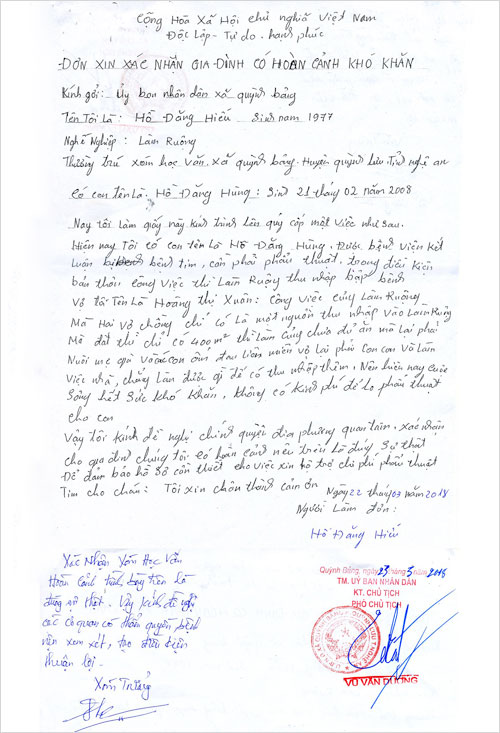 Cộng Hòa Xã Hội chủ nghĩa Việt Nam
Độc Lập - Tự do - hạnh phúc
ĐƠN XIN XÁC NHẬN GIA ĐÌNH CÓ HOÀN CẢNH KHÓ KHĂN
Kính gởi: Ủy ban nhân dân xã quỳnh bảng
Tên Tôi Là: Hồ Đăng Hiếu Sinh năm 1977
Nghề Nghiệp: Làm Ruộng
Thường trú xóm học văn, xã quỳnh bảng, Huyện quỳnh lưu Tỉnh nghệ an
Có con tên Là. Hồ Đăng Hùng: Sinh 21 tháng 02 năm 2008
Nay tôi làm giấy này kính trình lên quý cấp một việc như sau.
Hiện nay Tôi có con tên là Hồ Đăng Hùng. Được bệnh viện kết
luận bệnh tim, cần phải phẫu thuật. trong điều kiện
bản thân công việc thì Làm Ruộng thu nhập bấp bênh
Vợ tôi Tên Là Hoàng Thị Xuân: công việc cũng Làm Ruộng
Mà Hai vợ chồng chỉ có là một nguồn thu nhập vào Làm Ruộng
Mà đất thì chỉ có 400m² thì làm cũng chưa đủ ăn mà lại phải
Nuôi mẹ già và các con ốm đau liên miên vợ lại phải con và làm
Việc nhà, chẳng làm được gì để có thu nhập thêm. Nên hiện nay cuộc
Sống hết sức khó khăn, không có kinh phí để lo phẫu thuật
cho con
Vậy tôi kính đề nghị chính quyền địa phương quan tâm. xác nhận
cho gia đình chúng tôi có hoàn cảnh nêu trên là đúng sự thật
Để đảm bảo hồ sơ cần thiết cho việc xin hỗ trợ chi phí phẫu thuật
Tim cho cháu: Tôi xin chân thành cảm ơn
Ngày 22 tháng 03 năm 2018
Người Làm đơn:
Hồ Đăng Hiếu
Xác Nhận Xóm Học Văn
Hoàn cảnh trình bày trên là
đúng sự thật. Vậy kính đề nghị
các cơ quan có thẩm quyền bệnh
viện xem xét, tạo điều kiện
thuận lợi.
Xóm Trưởng
Quỳnh Bảng, ngày 23 tháng 3 năm 2018
TM. UỶ BAN NHÂN DÂN
KT. CHỦ TỊCH
PHÓ CHỦ TỊCH
VŨ VĂN DƯƠNG